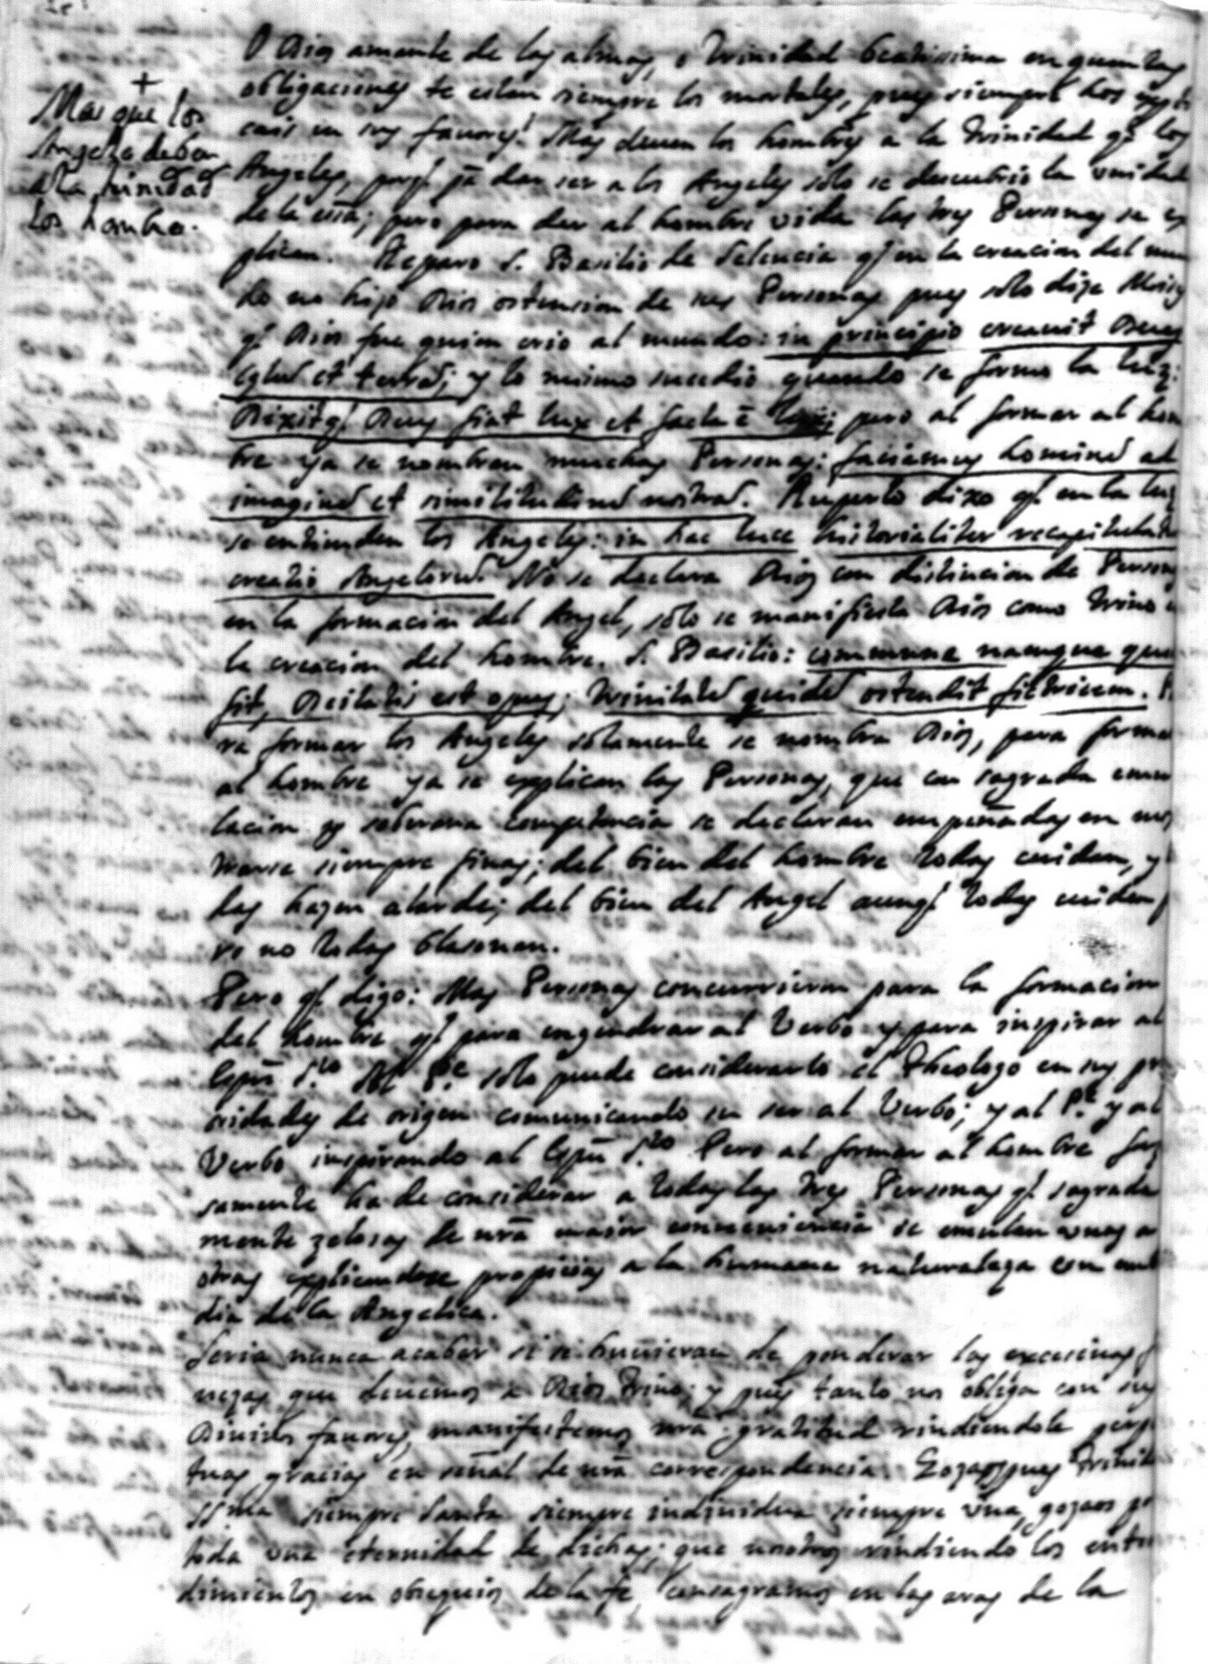 +
Mas que los
Angeles deben
a la trinidad
los hombres.
O Dios amante de las almas, o Trinidad beatissima en quan
obligaciones te estan siempre los mortales, pues siempre los
cais en sus favores! Mas deven los hombres a la Trinidad q̃ los
Angeles, porq̃ pa dar ser a los Angeles solo se descubrio la unidad
de la essa; pero para dar al hombre vida las tres Personas se ex
plican. Reparo S. Basilio de Seleucia q̃ en la creacion del mun
do no hizo Dios ostension de sus Personas pues solo dize Moises
q̃ Dios fue quien crio al mundo: in principio creavit Deus
cęlum et terram; y lo mismo sucedio quando se formo la luz:
Dixitq̃ Deus fiat lux et facta ē lux; pero al formar al hom
bre ya se nombran muchas Personas: faciamus hominē ad
imaginē et similitudinē nostrā. Ruperto dixo q̃ en la luz
se entienden los Angeles: in hac luce historialiter recapitulatur
creatio Angelorū. No se declara Dios con distincion de Personas
en la formacion del Angel, solo se manifiesta Dios como trino e
la creacion del hombre. S. Basilio: commune namque quo
fit, Deitatis est opus; trinitatē quidē ostendit fictricem.
ra formar los Angeles solamente se nombra Dios, para forma
al hombre ya se explican las Personas, que con sagrada emu
lacion y soberana competencia se declaran empeñadas en mos
trarse siempre finas; del bien del hombre todas cuidan, y
das hazen alarde; del bien del Angel aunq̃ todas cuidan p
ro no todas blasonan.
Pero q̃ digo: Mas Personas concurrieron para la formacion
del hombre q̃ para engendrar al Verbo y para inspirar al
Espũ S.to Al P.e solo puede considerarlo el Theologo en sus pr
oridades de origen comunicando su ser al Verbo; y al P.e y al
Verbo inspirando al Espũ S.to Pero al formar al hombre for
samente ha de considerar a todas las tres Personas q̃ sagrada
mente zelosas de nrã maior conveniencia se emulan unas a
otras explicandose propicias a la humana naturaleza con em
dia de la Angelica.
Seria nunca acabar si se huvieran de ponderar las excesivas
nezas que devemos a Dios trino; y pues tanto nos obliga con sus
Divinos favores, manifestemos nrã gratitud rindiendole perp
tuas gracias en señal de nrã correspondencia. Gozaos pues Trinid
ssma siempre santa siempre individua siempre una, gozaos po
toda una eternidad de dichas; que nosotros rindiendo los enten
dimientos en obsequio de la fe, consagramos en las aras de la